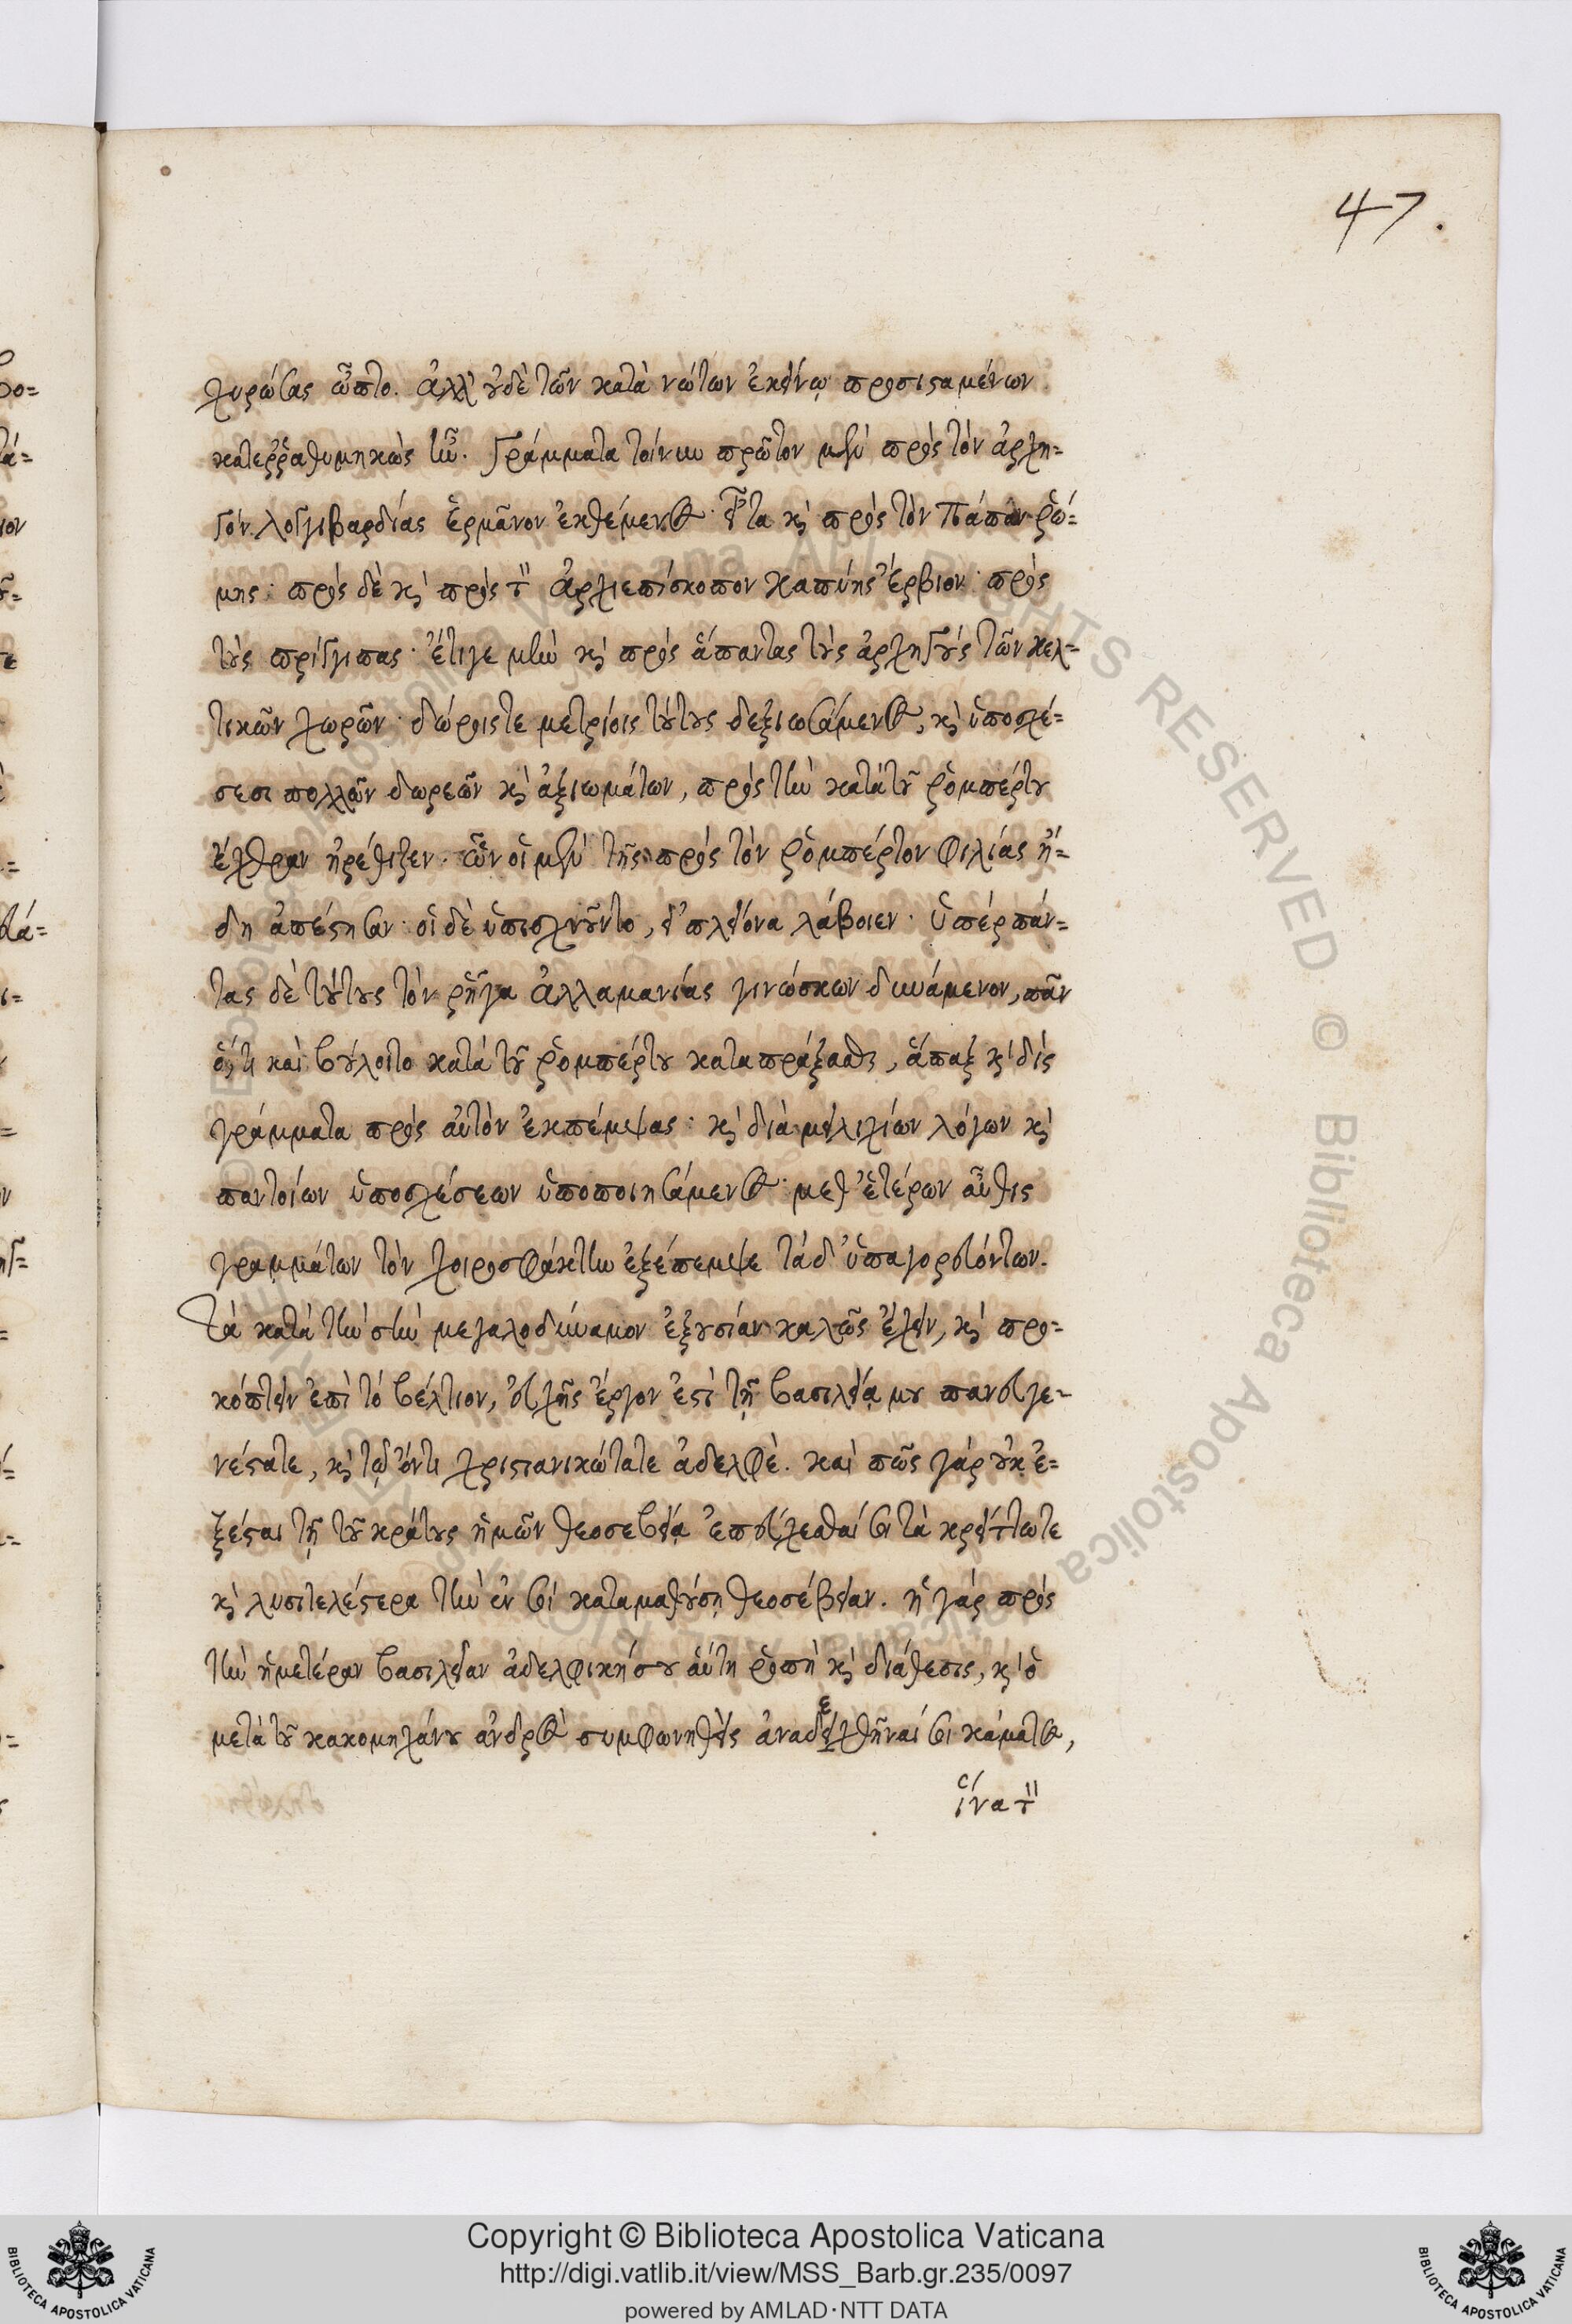 47.
χυρώσας ᾤετο. ἀλλ' οὐδὲ τῶν κατὰ νώτων ἐκείνῳ προσισταμένων
κατερραθυμηκὼς ἦν. Γράμματα τοίνυν πρῶτον μὲν πρὸς τὸν ἀρχη=
γὸν λογγιβαρδίας ἑρμᾶνον ἐκθέμενος· εἶτα καὶ πρὸς τὸν Πάπαν ρώ=
μης· πρὸς δὲ καὶ πρὸς τὸν ἀρχιεπίσκοπον καπύης ἕρβιον· πρὸς
τοὺς πρίγγιπας· ἔτιγε μὴν καὶ πρὸς ἅπαντας τοὺς ἀρχηγοὺς τῶν κελ=
τικῶν χωρῶν· δώροις τε μετρίοις τούτους δεξιωσάμενος, καὶ ὑποσχέ=
σεσι πολλῶν δωρεῶν καὶ ἀξιωμάτων, πρὸς τὴν κατὰ τοῦ ῥομπέρτου
ἔχθραν ἠρέθιζεν· ὧν οἱ μὲν τῆς πρὸς τὸν ῥομπέρτον φιλίας ἤ=
δη ἀπέστησαν· οἱ δὲ ὑπισχνοῦντο, εἰ πλείονα λάβοιεν. ὑπὲρ πάν=
τας δὲ τούτους τὸν ῥῆγα ἀλλαμανίας γινώσκων δυνάμενον, πᾶν
ὅ,τι καὶ βούλοιτο κατὰ τοῦ ῥομπέρτου καταπράξασθαι, ἅπαξ καὶ δὶς
γράμματα πρὸς αὐτὸν ἐκπέμψας· καὶ διὰ μειλιχίων λόγων καὶ
παντοίων ὑποσχέσεων ὑποποιησάμενος· μεθ' ἑτέρων αὖθις
γραμμάτων τὸν χοιροσφάκτην ἐξέπεμψε τάδ' ὑπαγορευόντων.
Τὰ κατὰ τὴν σὴν μεγαλοδύναμον ἐξουσίαν καλῶς ἔχειν, καὶ προ=
κόπτειν ἐπὶ τὸ βέλτιον, εὐχῆς ἔργον ἐστὶ τῇ βασιλείᾳ μου πανευγε=
νέστατε, καὶ τῷ ὄντι χριστιανικώτατε ἀδελφὲ. καὶ πῶς γὰρ οὐκ ἔ=
ξεσται τῇ τοῦ κράτους ἡμῶν θεοσεβείᾳ ἐπεύχεσθαί σοι τὰ κρείττω τε
καὶ λυσιτελέστερα τὴν ἐν σοὶ καταμαθούσῃ θεοσέβειαν. ἡ γὰρ πρὸς
τὴν ἡμετέραν βασιλείαν ἀδελφική σου αὕτη ῥοπὴ καὶ διάθεσις, καὶ ὁ
μετὰ τοῦ κακομηχάνου ἀνδρὸς συμφωνηθεὶς ἀναδεχθῆναί σοι κάματος,
ἵνα τὸν